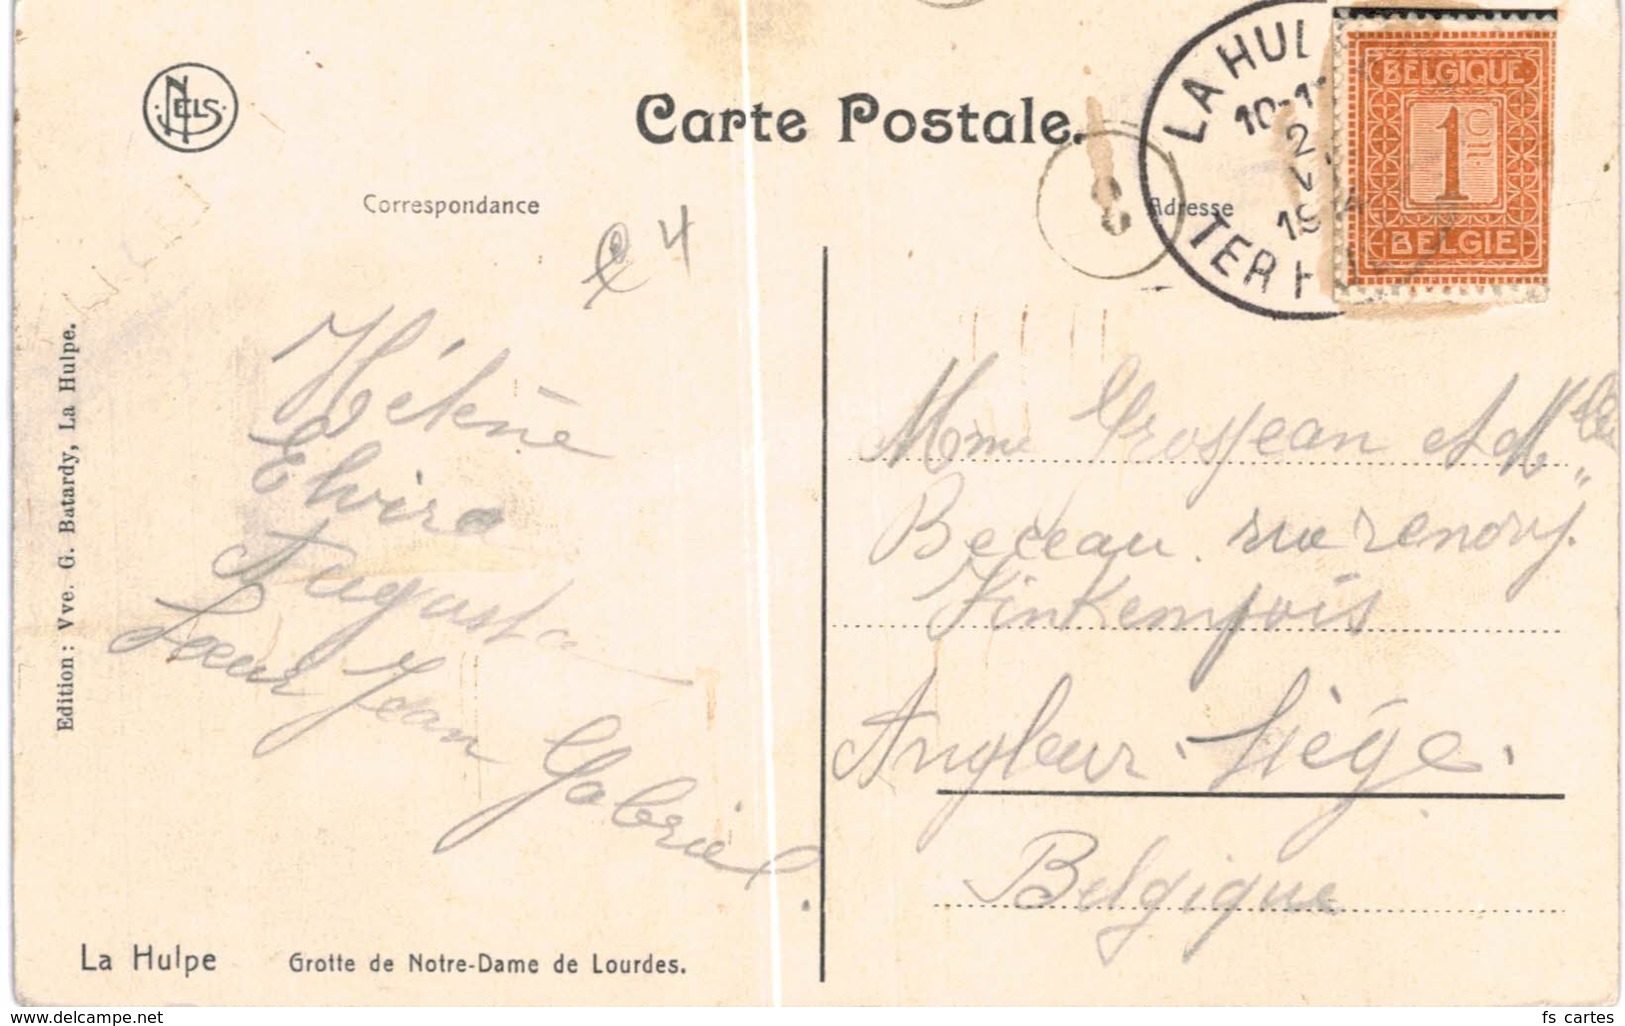 NELS
Carte Postale.
LA HUL
10-1
2
V
191
TER H
BELGIQUE
1 C
BELGIE
Correspondance
Adresse
4
Hélène
Elvire
Augusta
Sœur Jean Gabriel.
Mme Grosjean et Mlle
Beceau rue renory
Kinkempois
Angleur. Liége.
Belgique
Edition: Vve. G. Batardy, La Hulpe.
La Hulpe Grotte de Notre-Dame de Lourdes.
www.delcampe.net
fs_cartes